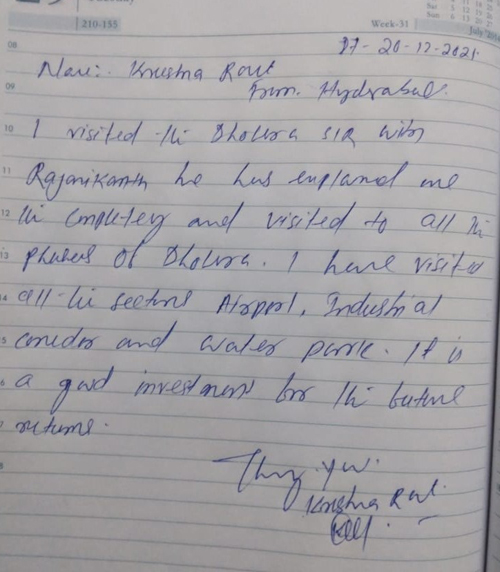 210-155
Week-31
08
July
DT- 20-12-2021
Name:. Krishna Rout
09
From. Hyderabad.
10 I visited the Dholera SIR with
11 Rajanikanth he has explaned me
12 the completey and visited to all the
13 phases of Dholera. I have visited
14 all the sectors Airport, Industrial
coredor and water park. It is
a good investment for the future
returns.
Thank you.
Krishna Rout